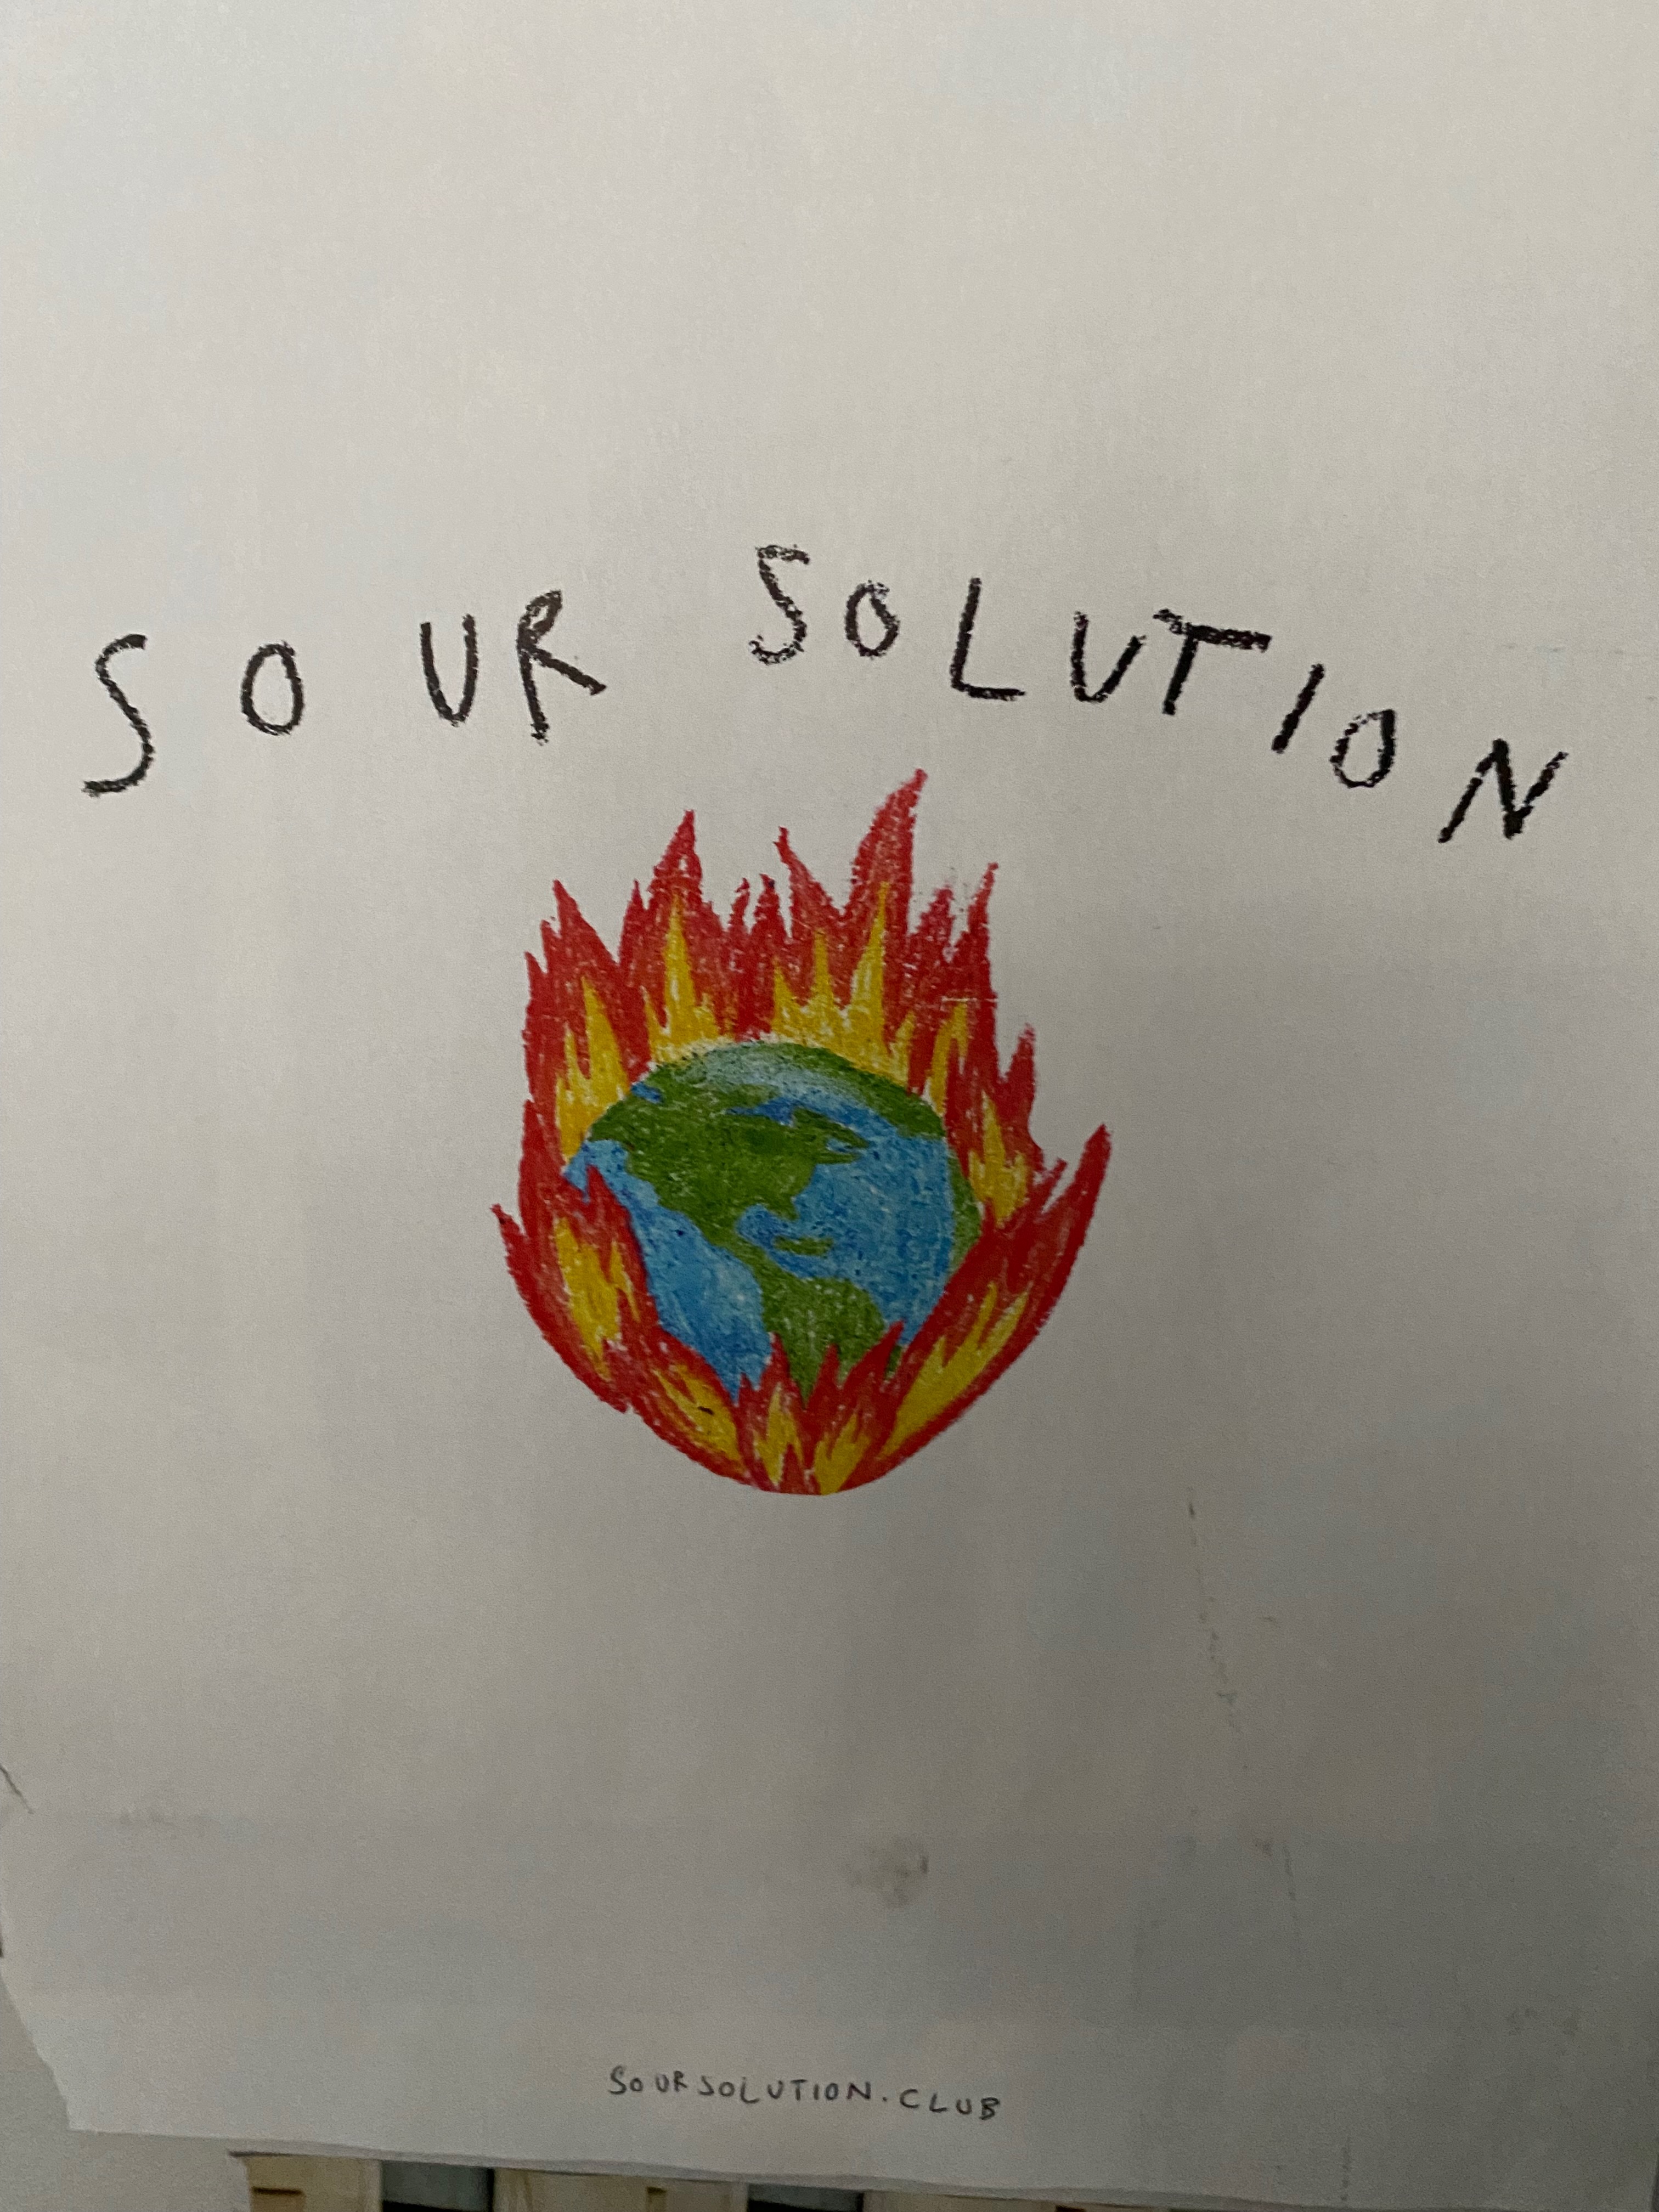 SOUR SOLUTION
SOURSOLUTION.CLUB